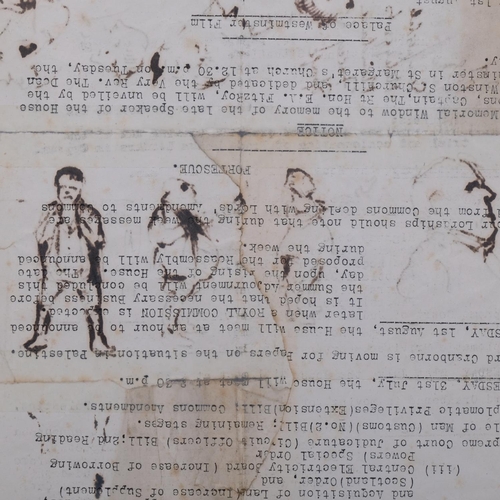 and Acquisition of Land(Increase of Supplement)
(Scotland)Order, and
(iii) Central Electricity Board (Increase of Borrowing
Powers) Special Order
preme Court of Judicature (Circuit Officers) Bill;2nd Reading
le of Man (Customs)(No.2)Bill; Remaining stages.
plomatic Privileges(Extension)Bill; Commons Amendments.
ESDAY, 31st July, the House will meet at 2-30 p.m.
rd Cranborne is moving for Papers on the situation in Palestine.
SDAY, 1st August, the House will meet at an hour to be announced
later when a ROYAL COMMISSION is expected.
It is hoped that the necessary Business before
the Summer Adjournment will be concluded this
day, upon the rising of the House. The date
proposed for the Reassembly will be announced
during the week.
ur Lordships should note that during the week messages are
from the Commons dealing with Lords' Amendments to Commons
FORTESCUE.
NOTICE
Memorial Window to the memory of the late Speaker of the House
ns, Captain The Rt Hon. E.A. Fitzroy, will be unveiled by the
Winston S. Churchill, and dedicated by the Very Rev. The Dean
inster in St Margaret's Church at 12.30 p.m. on Tuesday, the
y.
Palace of Westminster Film
1st August